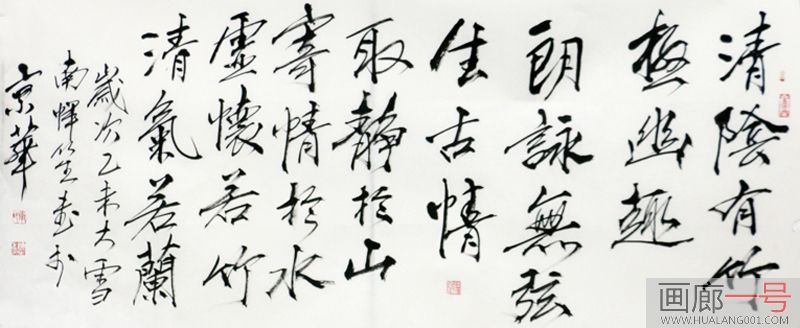 清陰有竹
極幽趣
朗詠無弦
生古情
取靜於山
寄情於水
虛懷若竹
清氣若蘭
歲次乙未大雪
南惲笙書於
京華
画廊一号
WWW.HUALANG001.COM